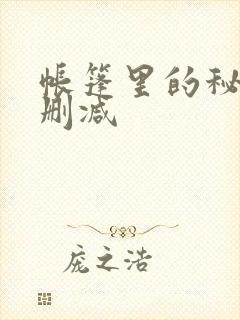 帐篷里的秘
删减
庞之浩